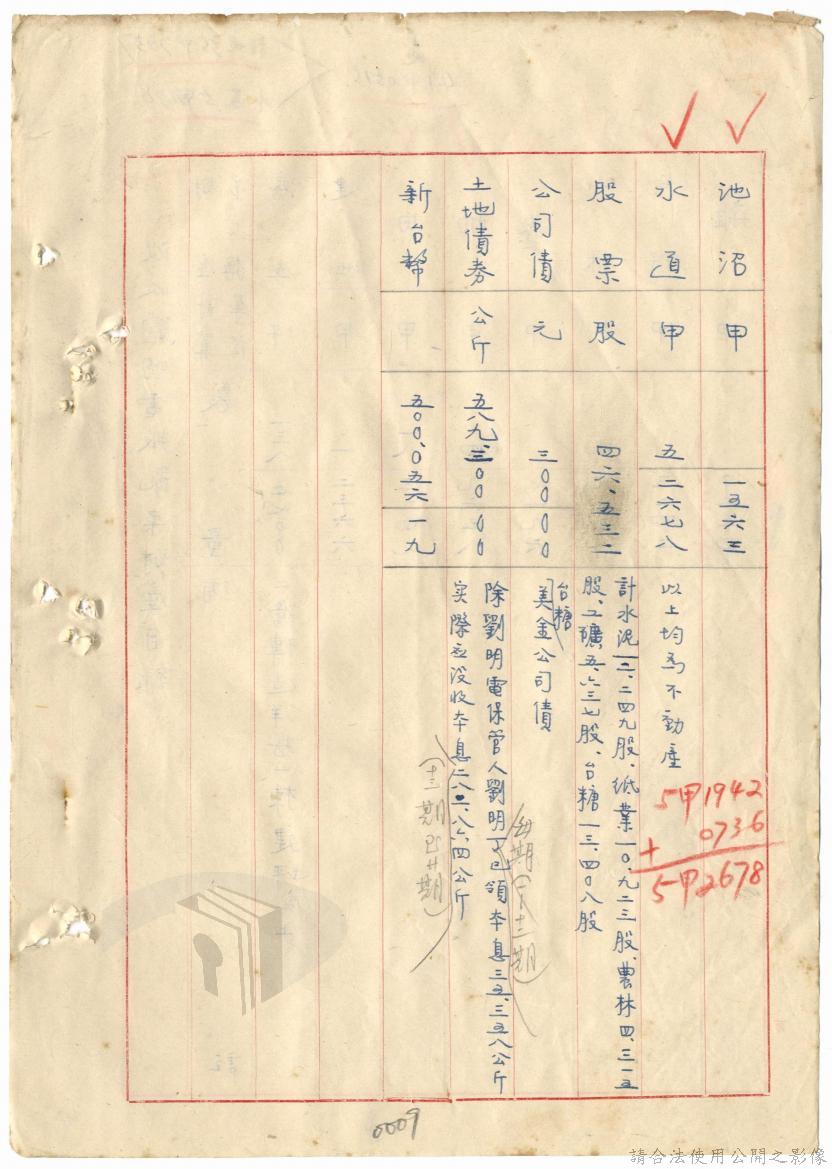 池沼 甲 一五六三
水道 甲 五 二六七八 以上均為不動產
5甲1942
+ 0736
5甲2678
股票 股 四六、五三二 計水泥一二、二四九股、紙業一〇、九二三股、農林四、三一五
股、工礦五、六三七股、台糖一三、四〇八股
公司債 元 三〇〇 〇〇 台糖美金公司債
土地債券 公斤 五八九、三〇〇 〇〇 除劉明電保管人劉明已領本息三五、三五八公斤
实際应没收本息二八二、八六四公斤
(十三期已廿期)
新台幣 五〇〇、〇五六 一九
0009
請合法使用公開之影像